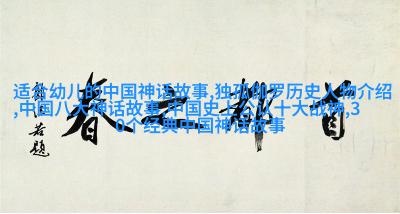 适合幼儿的中国神话故事,独孤伽罗历史人物介绍
,中国八大神话故事,中国史上公认十大战神,3
0个经典中国神话故事
首都之春
若题